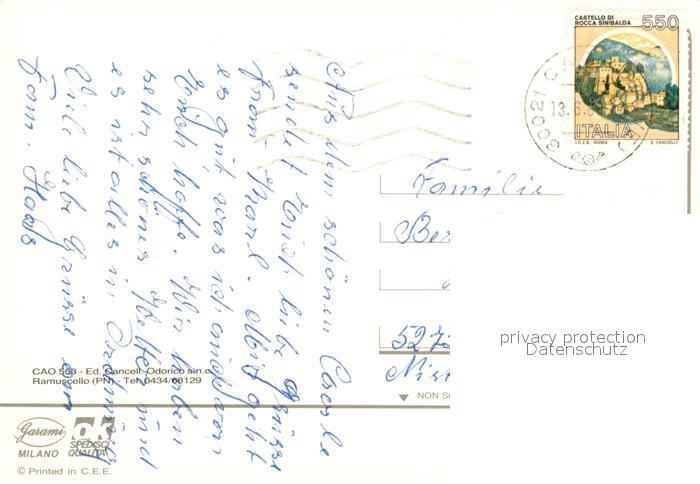 Aus dem schönen Caorle
sendet Euch liebe Grüsse
Fam. Karl. Mir geht
es gut was ich auch von
Euch hoffe. Wir haben
sehr schönes Wetter und
es ist alles in Ordnung
Viele liebe Grüsse von
Fam. Hads
CASTELLO DI
ROCCA SINIBALDA
550
ITALIA
I.P.Z.S. ROMA E. VANGELLI
30021
13.6.
Familie
Be
527
Nist
privacy protection
Datenschutz
CAO 583 - Ed. Cancell. Odorico s.n.c.
Ramuscello (PN) - Tel. 0434/68129
NON S
Garami
MILANO
SPEDISCI
QUALITÀ
© Printed in C.E.E.